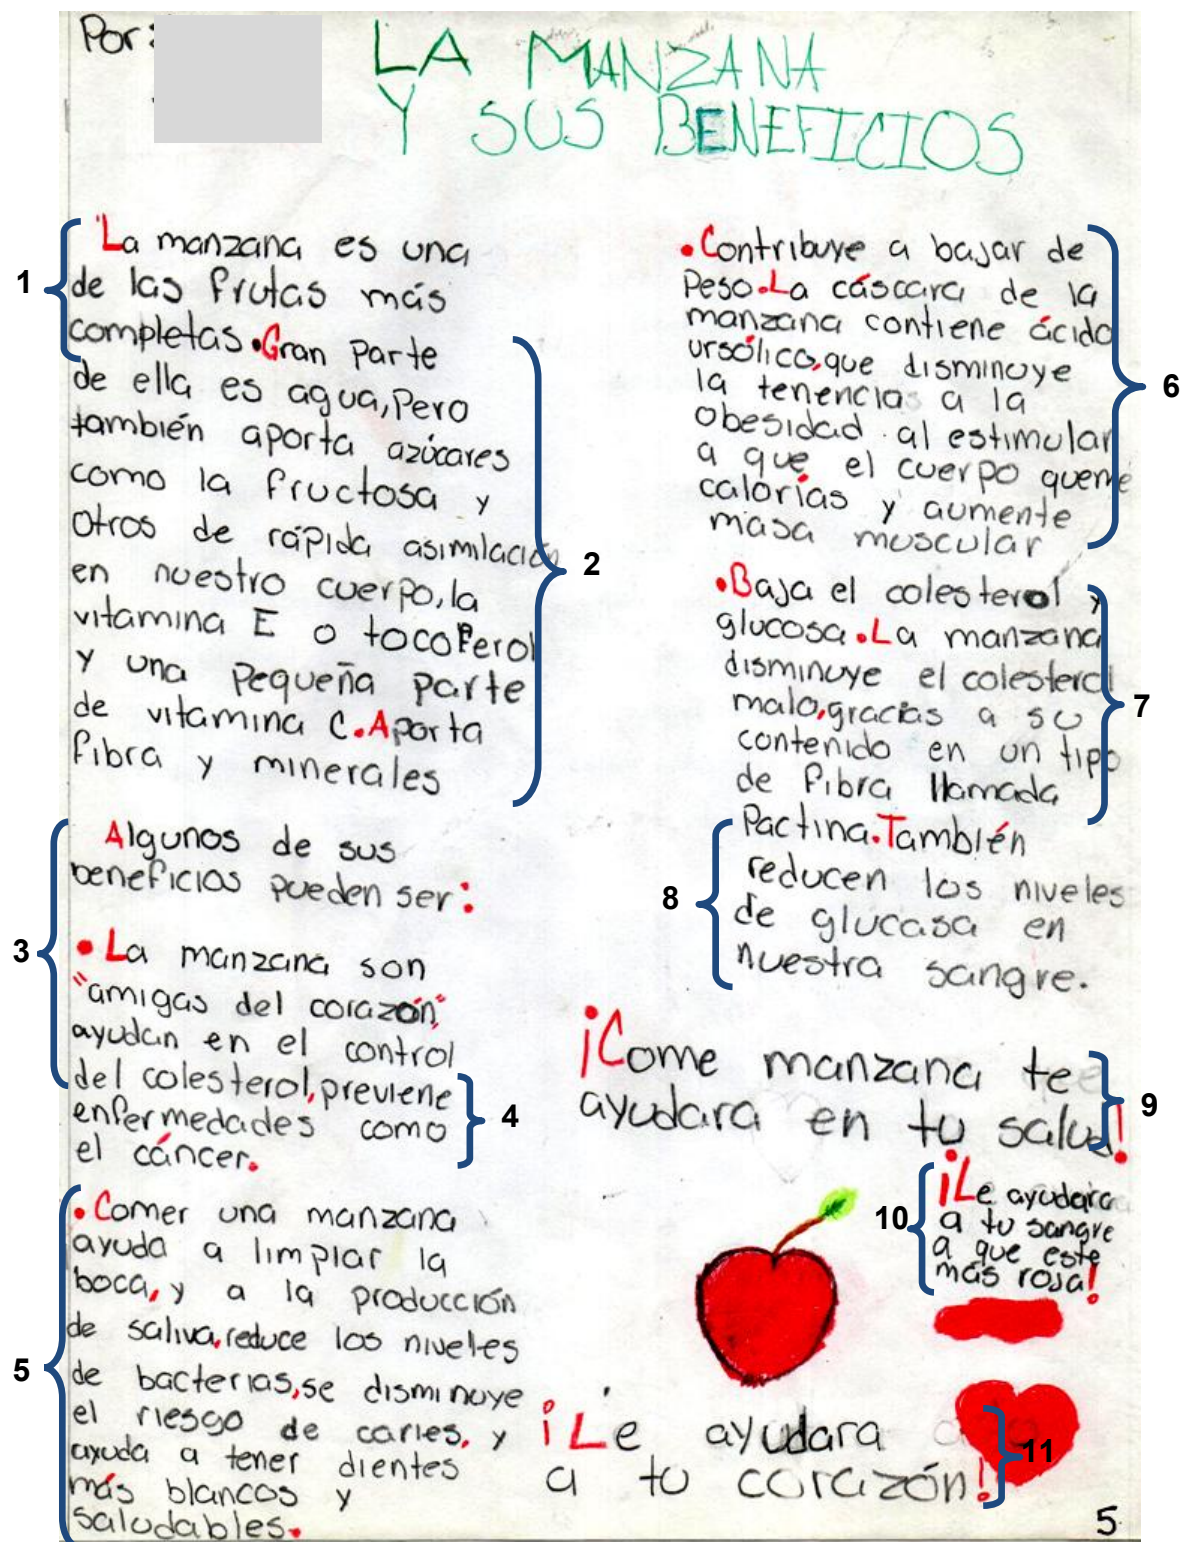 Por:
LA MANZANA
Y SUS BENEFICIOS
1
La manzana es una
de las frutas más
completas.Gran parte
de ella es agua,Pero
también aporta azúcares
como la fructosa y
otros de rápida asimilación
en nuestro cuerpo,la
vitamina E o tocoferol
y una pequeña parte
de vitamina C.Aporta
fibra y minerales
2
3
Algunos de sus
beneficios pueden ser:
•La manzana son
"amigas del corazón"
ayudan en el control
del colesterol,previene
enfermedades como
el cáncer.
4
5
•Comer una manzana
ayuda a limpiar la
boca,y a la producción
de saliva,reduce los niveles
de bacterias,se disminuye
el riesgo de caries, y
ayuda a tener dientes
más blancos y
saludables.
•Contribuye a bajar de
Peso.La cáscara de la
manzana contiene ácido
ursólico,que disminuye
la tenencias a la
obesidad al estimular
a que el cuerpo queme
calorías y aumente
masa muscular
6
•Baja el colesterol y
glucosa.La manzana
disminuye el colesterol
malo,gracias a su
contenido en un tipo
de fibra llamada
Pactina.También
reducen los niveles
de glucasa en
nuestra sangre.
7
8
¡Come manzana te
ayudara en tu salud!
9
10
¡Le ayudara
a tu sangre
a que este
más roja!
¡Le ayudara
a tu corazón!
11
5